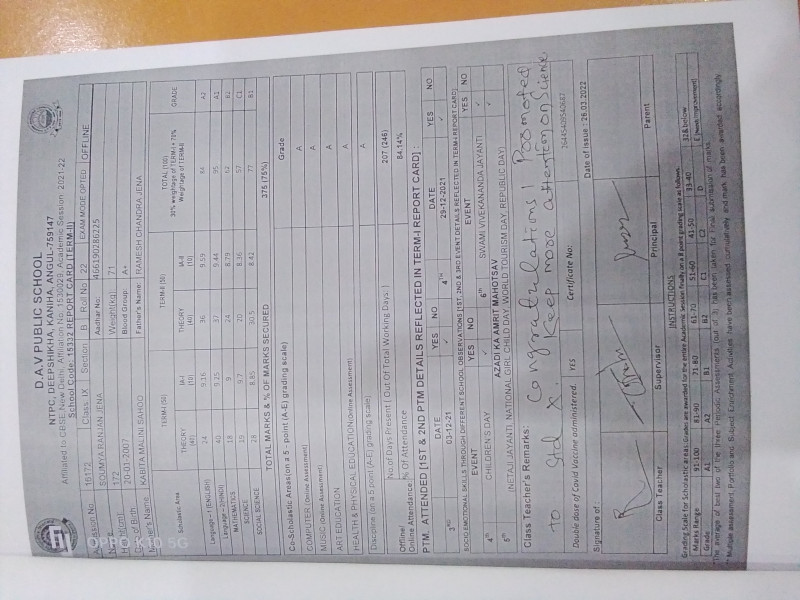 D.A.V PUBLIC SCHOOL
NTPC, DEEPSHIKHA, KANIHA, ANGUL-759147
Affiliated to CBSE, New Delhi, Affiliation No. 1530029, Academic Session: 2021-22
School Code: 15332 REPORT CARD (TERM-II)
No. 16172 Class: IX Section: B Roll No: 22 EXAM MODE OPTED: OFFLINE
Name SOUMYA RANJAN JENA Aadhar No. 466190286225
172 Weight(kg) 71
Birth 20-01-2007 Blood Group A+
Name KABITA MALINI SAHOO Father's Name: RAMESH CHANDRA JENA
Scholastic Area TERM-I (50) TERM-II (50) TOTAL (100) GRADE
THEORY (40) IA-I (10) THEORY (40) IA-II (10) 30% weightage of TERM-I + 70% Weightage of TERM-II
(ENGLISH) 24 9.16 36 9.59 84 A2
40 9.25 37 9.44 95 A1
MATHEMATICS 18 9 24 8.79 62 B2
SCIENCE 19 9.7 20 8.36 57 C1
SOCIAL SCIENCE 28 8.85 30.5 8.42 77 B1
TOTAL MARKS & % OF MARKS SECURED 375 (75%)
Co-Scholastic Areas (on a 5 - point (A-E) grading scale) Grade
COMPUTER (Online Assessment) A
MUSIC (Online Assessment) A
ART EDUCATION A
HEALTH & PHYSICAL EDUCATION (Online Assessment) A
Discipline (on a 5 point (A-E) grading scale) A
Offline/ Online Attendance No.of Days Present ( Out Of Total Working Days: ) 207 (246)
% Of Attendance 84.14%
PTM. ATTENDED [1ST & 2ND PTM DETAILS REFLECTED IN TERM-I REPORT CARD] :
DATE YES NO DATE YES NO
3RD 03-12-21 ✓ 4TH 29-12-2021 ✓
SOCIO EMOTIONAL SKILLS THROUGH DIFFERENT SCHOOL OBSERVATIONS [1ST, 2ND & 3RD EVENT DETAILS REFLECTED IN TERM-I REPORT CARD]
EVENT YES NO EVENT YES NO
4th CHILDREN'S DAY ✓ 6th SWAMI VIVEKANANDA JAYANTI ✓
5th AZADI KA AMRIT MAHOTSAV ✓
(NETAJI JAYANTI, NATIONAL GIRL CHILD DAY, WORLD TOURISM DAY, REPUBLIC DAY)
Class Teacher's Remarks: Congratulations! Promoted
to Std X. Keep more attention on Science
Double dose of Covid Vaccine administered. YES Certificate No:
Signature of : Date of Issue : 26.03.2022
Class Teacher Supervisor Principal Parent
INSTRUCTIONS
Grading Scale for Scholastic areas: Grades are awarded for the entire Academic Session finally on a 8 point grading scale as follows.
Marks Range 91-100 81-90 71-80 61-70 51-60 41-50 33-40 32 & below
Grade A1 A2 B1 B2 C1 C2 D E (Needs Improvement)
*The average of best two of the three Periodic Assessments (out of 3) has been taken for final submission of marks.
* Multiple assessment, Portfolio and Subject Enrichment Activities have been assessed cumulatively and mark has been awarded accordingly
OPPO K10 5G